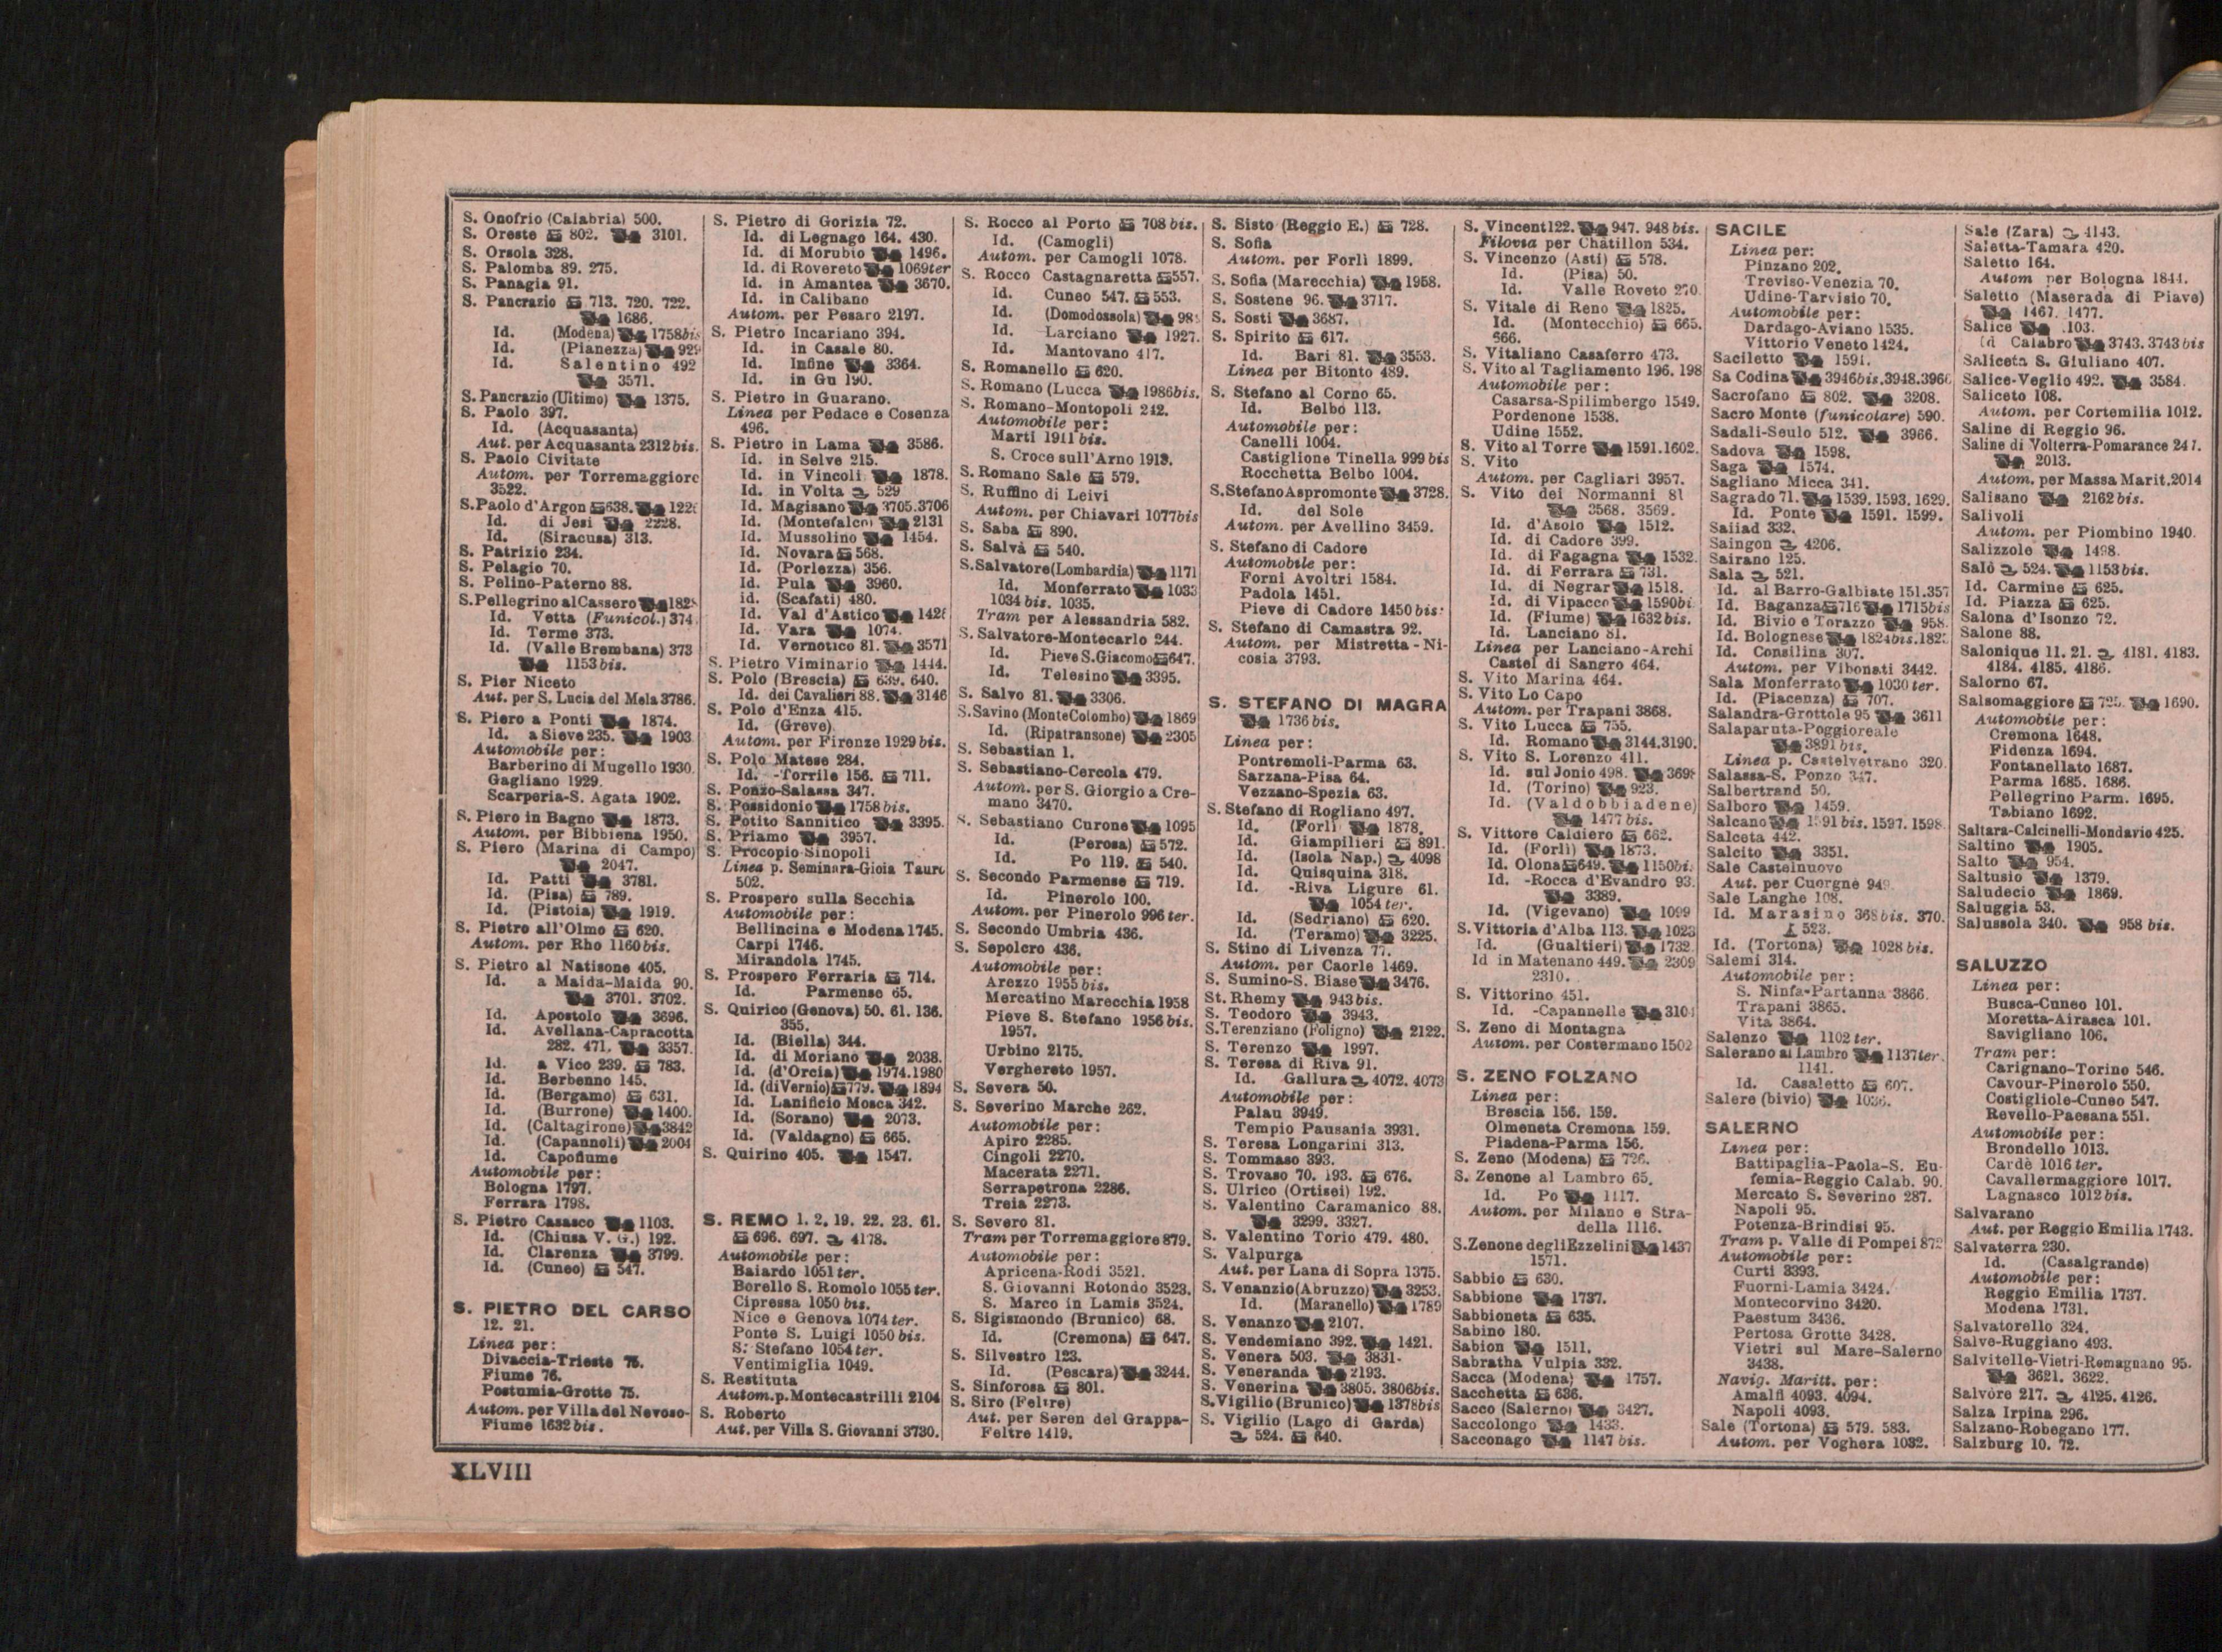 S. Onofrio (Calabria) 500.
S. Oreste 802. 3101.
S. Orsola 328.
S. Palomba 89. 275.
S. Panagia 91.
S. Pancrazio 713. 720. 722.
1686.
Id. (Modena) 1758bis
Id. (Pianezza) 929
Id. Salentino 492
3571.
S. Pancrazio (Ultimo) 1375.
S. Paolo 397.
Id. (Acquasanta)
Aut. per Acquasanta 2312bis.
S. Paolo Civitate
Autom. per Torremaggiore
3522.
S. Paolo d'Argon 638.
Id. di Jesi 2228.
Id. (Siracusa) 313.
S. Patrizio 234.
S. Pelagio 70.
S. Pelino-Paterno 88.
S. Pellegrino al Cassero
Id. Vetta (Funicol.) 374.
Id. Terme 373.
Id. (Valle Brembana) 373
1153bis.
S. Pier Niceto
Aut. per S. Lucia del Mela 3786.
S. Piero a Ponti 1874.
Id. a Sieve 235. 1903.
Automobile per:
Barberino di Mugello 1930.
Gagliano 1929.
Scarperia-S. Agata 1902.
S. Piero in Bagno 1873.
Autom. per Bibbiena 1950.
S. Piero (Marina di Campo)
2047.
Id. Patti 3781.
Id. (Pisa) 789.
Id. (Pistoia) 1919.
S. Pietro all'Olmo 620.
Autom. per Rho 1160bis.
S. Pietro al Natisone 405.
Id. a Maida-Maida 90.
3701. 3702.
Id. Apostolo 3696.
Id. Avellana-Capracotta
282. 471. 3357.
Id. a Vico 239. 783.
Id. Berbenno 145.
Id. (Bergamo) 631.
Id. (Burrone) 1400.
Id. (Caltagirone) 3842
Id. (Capannoli) 2004
Id. Capofiume
Automobile per:
Bologna 1797.
Ferrara 1798.
S. Pietro Casasco 1103.
Id. (Chiusa V. G.) 192.
Id. Clarenza 3799.
Id. (Cuneo) 547.
S. PIETRO DEL CARSO
12. 21.
Linea per:
Divaccia-Trieste 75.
Fiume 76.
Postumia-Grotte 75.
Autom. per Villa del Nevoso-
Fiume 1632bis.
S. Pietro di Gorizia 72.
Id. di Legnago 164. 430.
Id. di Morubio 1496.
Id. di Rovereto 1069ter
Id. in Amantea 3670.
Id. in Calibano
Autom. per Pesaro 2197.
S. Pietro Incariano 394.
Id. in Casale 80.
Id. Infine 3364.
Id. in Gu 190.
S. Pietro in Guarano.
Linea per Pedace e Cosenza
496.
S. Pietro in Lama 3586.
Id. in Selve 215.
Id. in Vincoli 1878.
Id. in Volta 529
Id. Magisano 3705.3706
Id. (Montefalco) 2131
Id. Mussolino 1454.
Id. Novara 568.
Id. (Porlezza) 356.
Id. Pula 3960.
id. (Scafati) 480.
Id. Val d'Astico
Id. Vara 1074.
Id. Vernotico 81. 3571
S. Pietro Viminario 1444.
S. Polo (Brescia) 639. 640.
Id. dei Cavalieri 88. 3146
S. Polo d'Enza 415.
Id. (Greve)
Autom. per Firenze 1929bis.
S. Polo Matese 284.
Id. -Torrile 156. 711.
S. Ponzo-Salassa 347.
S. Possidonio 1758bis.
S. Potito Sannitico 3395.
S. Priamo 3957.
S. Procopio Sinopoli
Linea p. Seminara-Gioia Tauro
502.
S. Prospero sulla Secchia
Automobile per:
Bellincina e Modena 1745.
Carpi 1746.
Mirandola 1745.
S. Prospero Ferraria 714.
Id. Parmense 65.
S. Quirico (Genova) 50. 61. 136.
355.
Id. (Biella) 344.
Id. di Moriano 2038.
Id. (d'Orcia) 1974.1980
Id. (di Vernio) 779. 1894
Id. Lanificio Mosca 342.
Id. (Sorano) 2073.
Id. (Valdagno) 665.
S. Quirino 405. 1547.
S. REMO 1. 2. 19. 22. 23. 61.
696. 697. 4178.
Automobile per:
Baiardo 1051ter.
Borello S. Romolo 1055ter.
Cipressa 1050bis.
Nice e Genova 1074ter.
Ponte S. Luigi 1050bis.
S. Stefano 1054ter.
Ventimiglia 1049.
S. Restituta
Autom. p. Montecastrilli 2104
S. Roberto
Aut. per Villa S. Giovanni 3730.
S. Rocco al Porto 708bis.
Id. (Camogli)
Autom. per Camogli 1078.
S. Rocco Castagnaretta 557.
Id. Cuneo 547. 553.
Id. (Domodossola)
Id. Larciano 1927.
Id. Mantovano 417.
S. Romanello 620.
S. Romano (Lucca 1986bis.
S. Romano-Montopoli 242.
Automobile per:
Marti 1911bis.
S. Croce sull'Arno 1913.
S. Romano Sale 579.
S. Ruffino di Leivi
Autom. per Chiavari 1077bis
S. Saba 890.
S. Salvà 540.
S. Salvatore (Lombardia) 1171
Id. Monferrato 1033
1034bis. 1035.
Tram per Alessandria 582.
S. Salvatore-Montecarlo 244.
Id. Pieve S. Giacomo 647.
Id. Telesino 3395.
S. Salvo 81. 3306.
S. Savino (Monte Colombo) 1869
Id. (Ripatransone) 2305
S. Sebastian 1.
S. Sebastiano-Cercola 479.
Autom. per S. Giorgio a Cre-
mano 3470.
S. Sebastiano Curone 1095
Id. (Perosa) 572.
Id. Po 119. 540.
S. Secondo Parmense 719.
Id. Pinerolo 100.
Autom. per Pinerolo 996ter.
S. Secondo Umbria 436.
S. Sepolcro 436.
Automobile per:
Arezzo 1955bis.
Mercatino Marecchia 1958
Pieve S. Stefano 1956bis.
1957.
Urbino 2175.
Verghereto 1957.
S. Severa 50.
S. Severino Marche 262.
Automobile per:
Apiro 2285.
Cingoli 2270.
Macerata 2271.
Serrapetrona 2286.
Treia 2273.
S. Severo 81.
Tram per Torremaggiore 879.
Automobile per:
Apricena-Rodi 3521.
S. Giovanni Rotondo 3523.
S. Marco in Lamis 3524.
S. Sigismondo (Brunico) 68.
Id. (Cremona) 647.
S. Silvestro 123.
Id. (Pescara) 3244.
S. Sinforosa 801.
S. Siro (Feltre)
Aut. per Seren del Grappa-
Feltre 1419.
S. Sisto (Reggio E.) 728.
S. Sofia
Autom. per Forlì 1899.
S. Sofia (Marecchia) 1958.
S. Sostene 96. 3717.
S. Sosti 3687.
S. Spirito 617.
Id. Bari 81. 3553.
Linea per Bitonto 489.
S. Stefano al Corno 65.
Id. Belbo 113.
Automobile per:
Canelli 1004.
Castiglione Tinella 999bis
Rocchetta Belbo 1004.
S. Stefano Aspromonte 3728.
Id. del Sole
Autom. per Avellino 3459.
S. Stefano di Cadore
Automobile per:
Forni Avoltri 1584.
Padola 1451.
Pieve di Cadore 1450bis.
S. Stefano di Camastra 92.
Autom. per Mistretta-Ni-
cosia 3793.
S. STEFANO DI MAGRA
1736bis.
Linea per:
Pontremoli-Parma 63.
Sarzana-Pisa 64.
Vezzano-Spezia 63.
S. Stefano di Rogliano 497.
Id. (Forlì) 1878.
Id. Giampilieri 891.
Id. (Isola Nap.) 4098
Id. Quisquina 318.
Id. -Riva Ligure 61.
1054ter.
Id. (Sedriano) 620.
Id. (Teramo) 3225.
S. Stino di Livenza 77.
Autom. per Caorle 1469.
S. Sumino-S. Biase 3476.
St. Rhemy 943bis.
S. Teodoro 3943.
S. Terenziano (Foligno) 2122.
S. Terenzo 1997.
S. Teresa di Riva 91.
Id. Gallura 4072. 4073
Automobile per:
Palau 3949.
Tempio Pausania 3931.
S. Teresa Longarini 313.
S. Tommaso 393.
S. Trovaso 70. 193. 676.
S. Ulrico (Ortisei) 192.
S. Valentino Caramanico 88.
3299. 3327.
S. Valentino Torio 479. 480.
S. Valpurga
Aut. per Lana di Sopra 1375.
S. Venanzio (Abruzzo) 3253.
Id. (Maranello) 1789
S. Venanzo 2107.
S. Vendemiano 392. 1421.
S. Venera 503. 3831.
S. Veneranda 2193.
S. Venerina 3805. 3806bis.
S. Vigilio (Brunico) 1378bis
S. Vigilio (Lago di Garda)
524. 640.
S. Vincent 122. 947. 948bis.
Filovia per Châtillon 534.
S. Vincenzo (Asti) 578.
Id. (Pisa) 50.
Id. Valle Roveto 270.
S. Vitale di Reno 1825.
Id. (Montecchio) 665.
666.
S. Vitaliano Casaferro 473.
S. Vito al Tagliamento 196. 198
Automobile per:
Casarsa-Spilimbergo 1549.
Pordenone 1538.
Udine 1552.
S. Vito al Torre 1591.1602.
S. Vito
Autom. per Cagliari 3957.
S. Vito dei Normanni 81
3568. 3569.
Id. d'Asolo 1512.
Id. di Cadore 399.
Id. di Fagagna 1532.
Id. di Ferrara 731.
Id. di Negrar 1518.
Id. di Vipacco 1590bi
Id. (Fiume) 1632bis.
Id. Lanciano 81.
Linea per Lanciano-Archi
Castel di Sangro 464.
S. Vito Marina 464.
S. Vito Lo Capo
Autom. per Trapani 3868.
S. Vito Lucca 755.
Id. Romano 3144.3190.
S. Vito S. Lorenzo 411.
Id. sul Jonio 498.
Id. (Torino) 923.
Id. (Valdobbiadene)
1477bis.
S. Vittore Caldiero 662.
Id. (Forlì) 1873.
Id. Olona 649. 1150bis
Id. -Rocca d'Evandro 93.
3389.
Id. (Vigevano) 1099
S. Vittoria d'Alba 113. 1023
Id. (Gualtieri) 1732
Id in Matenano 449. 2309
2310.
S. Vittorino 451.
Id. -Capannelle
S. Zeno di Montagna
Autom. per Costermano 1502
S. ZENO FOLZANO
Linea per:
Brescia 156. 159.
Olmeneta Cremona 159.
Piadena-Parma 156.
S. Zeno (Modena) 726.
S. Zenone al Lambro 65.
Id. Po 1117.
Autom. per Milano e Stra-
della 1116.
S. Zenone degli Ezzelini 1437
1571.
Sabbio 630.
Sabbione 1737.
Sabbioneta 635.
Sabino 180.
Sabion 1511.
Sabratha Vulpia 332.
Sacca (Modena) 1757.
Sacchetta 636.
Sacco (Salerno) 3427.
Saccolongo 1433.
Sacconago 1147bis.
SACILE
Linea per:
Pinzano 202.
Treviso-Venezia 70.
Udine-Tarvisio 70.
Automobile per:
Dardago-Aviano 1535.
Vittorio Veneto 1424.
Saciletto 1591.
Sa Codina 3946bis.3948.
Sacrofano 802. 3208.
Sacro Monte (funicolare) 590.
Sadali-Seulo 512. 3966.
Sadova 1598.
Saga 1574.
Sagliano Micca 341.
Sagrado 71. 1539. 1593. 1629.
Id. Ponte 1591. 1599.
Saiiad 332.
Saingon 4206.
Sairano 125.
Sala 521.
Id. al Barro-Galbiate 151.357
Id. Baganza 716 1715bis
Id. Bivio e Torazzo 958.
Id. Bolognese 1824bis.
Id. Consilina 307.
Autom. per Vibonati 3442.
Sala Monferrato 1030ter.
Id. (Piacenza) 707.
Salandra-Grottole 95 3611
Salaparuta-Poggioreale
3891bis.
Linea p. Castelvetrano 320.
Salassa-S. Ponzo 347.
Salbertrand 50.
Salboro 1459.
Salcano 1591bis. 1597. 1598.
Salceta 442.
Salcito 3351.
Sale Castelnuovo
Aut. per Cuorgnè
Sale Langhe 108.
Id. Marasino 368bis. 370.
523.
Id. (Tortona) 1028bis.
Salemi 314.
Automobile per:
S. Ninfa-Partanna 3866.
Trapani 3865.
Vita 3864.
Salenzo 1102ter.
Salerano al Lambro 1137ter.
1141.
Id. Casaletto 607.
Salere (bivio) 1036.
SALERNO
Linea per:
Battipaglia-Paola-S. Eu-
femia-Reggio Calab. 90.
Mercato S. Severino 287.
Napoli 95.
Potenza-Brindisi 95.
Tram p. Valle di Pompei 872
Automobile per:
Curti 3393.
Fuorni-Lamia 3424.
Montecorvino 3420.
Paestum 3436.
Pertosa Grotte 3428.
Vietri sul Mare-Salerno
3438.
Navig. Maritt. per:
Amalfi 4093. 4094.
Napoli 4093.
Sale (Tortona) 579. 583.
Autom. per Voghera 1032.
Sale (Zara) 4143.
Saletta-Tamara 420.
Saletto 164.
Autom per Bologna 1844.
Saletto (Maserada di Piave)
1467. 1477.
Salice 103.
Id Calabro 3743. 3743bis
Saliceta S. Giuliano 407.
Salice-Veglio 492. 3584.
Saliceto 108.
Autom. per Cortemilia 1012.
Saline di Reggio 96.
Saline di Volterra-Pomarance 247.
2013.
Autom. per Massa Marit. 2014
Salisano 2162bis.
Salivoli
Autom. per Piombino 1940.
Salizzole 1498.
Salò 524. 1153bis.
Id. Carmine 625.
Id. Piazza 625.
Salona d'Isonzo 72.
Salone 88.
Salonique 11. 21. 4181. 4183.
4184. 4185. 4186.
Salorno 67.
Salsomaggiore 725. 1690.
Automobile per:
Cremona 1648.
Fidenza 1694.
Fontanellato 1687.
Parma 1685. 1686.
Pellegrino Parm. 1695.
Tabiano 1692.
Saltara-Calcinelli-Mondavio 425.
Saltino 1905.
Salto 954.
Saltusio 1379.
Saludecio 1869.
Saluggia 53.
Salussola 340. 958bis.
SALUZZO
Linea per:
Busca-Cuneo 101.
Moretta-Airasca 101.
Savigliano 106.
Tram per:
Carignano-Torino 546.
Cavour-Pinerolo 550.
Costigliole-Cuneo 547.
Revello-Paesana 551.
Automobile per:
Brondello 1013.
Cardè 1016ter.
Cavallermaggiore 1017.
Lagnasco 1012bis.
Salvarano
Aut. per Reggio Emilia 1743.
Salvaterra 230.
Id. (Casalgrande)
Automobile per:
Reggio Emilia 1737.
Modena 1731.
Salvatorello 324.
Salve-Ruggiano 493.
Salvitelle-Vietri-Romagnano 95.
3621. 3622.
Salvore 217. 4125. 4126.
Salza Irpina 296.
Salzano-Robegano 177.
Salzburg 10. 72.
XLVIII